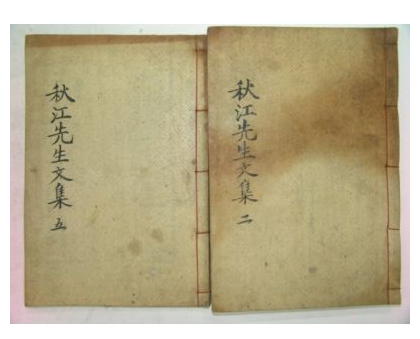 秋江先生文集 五
秋江先生文集 二